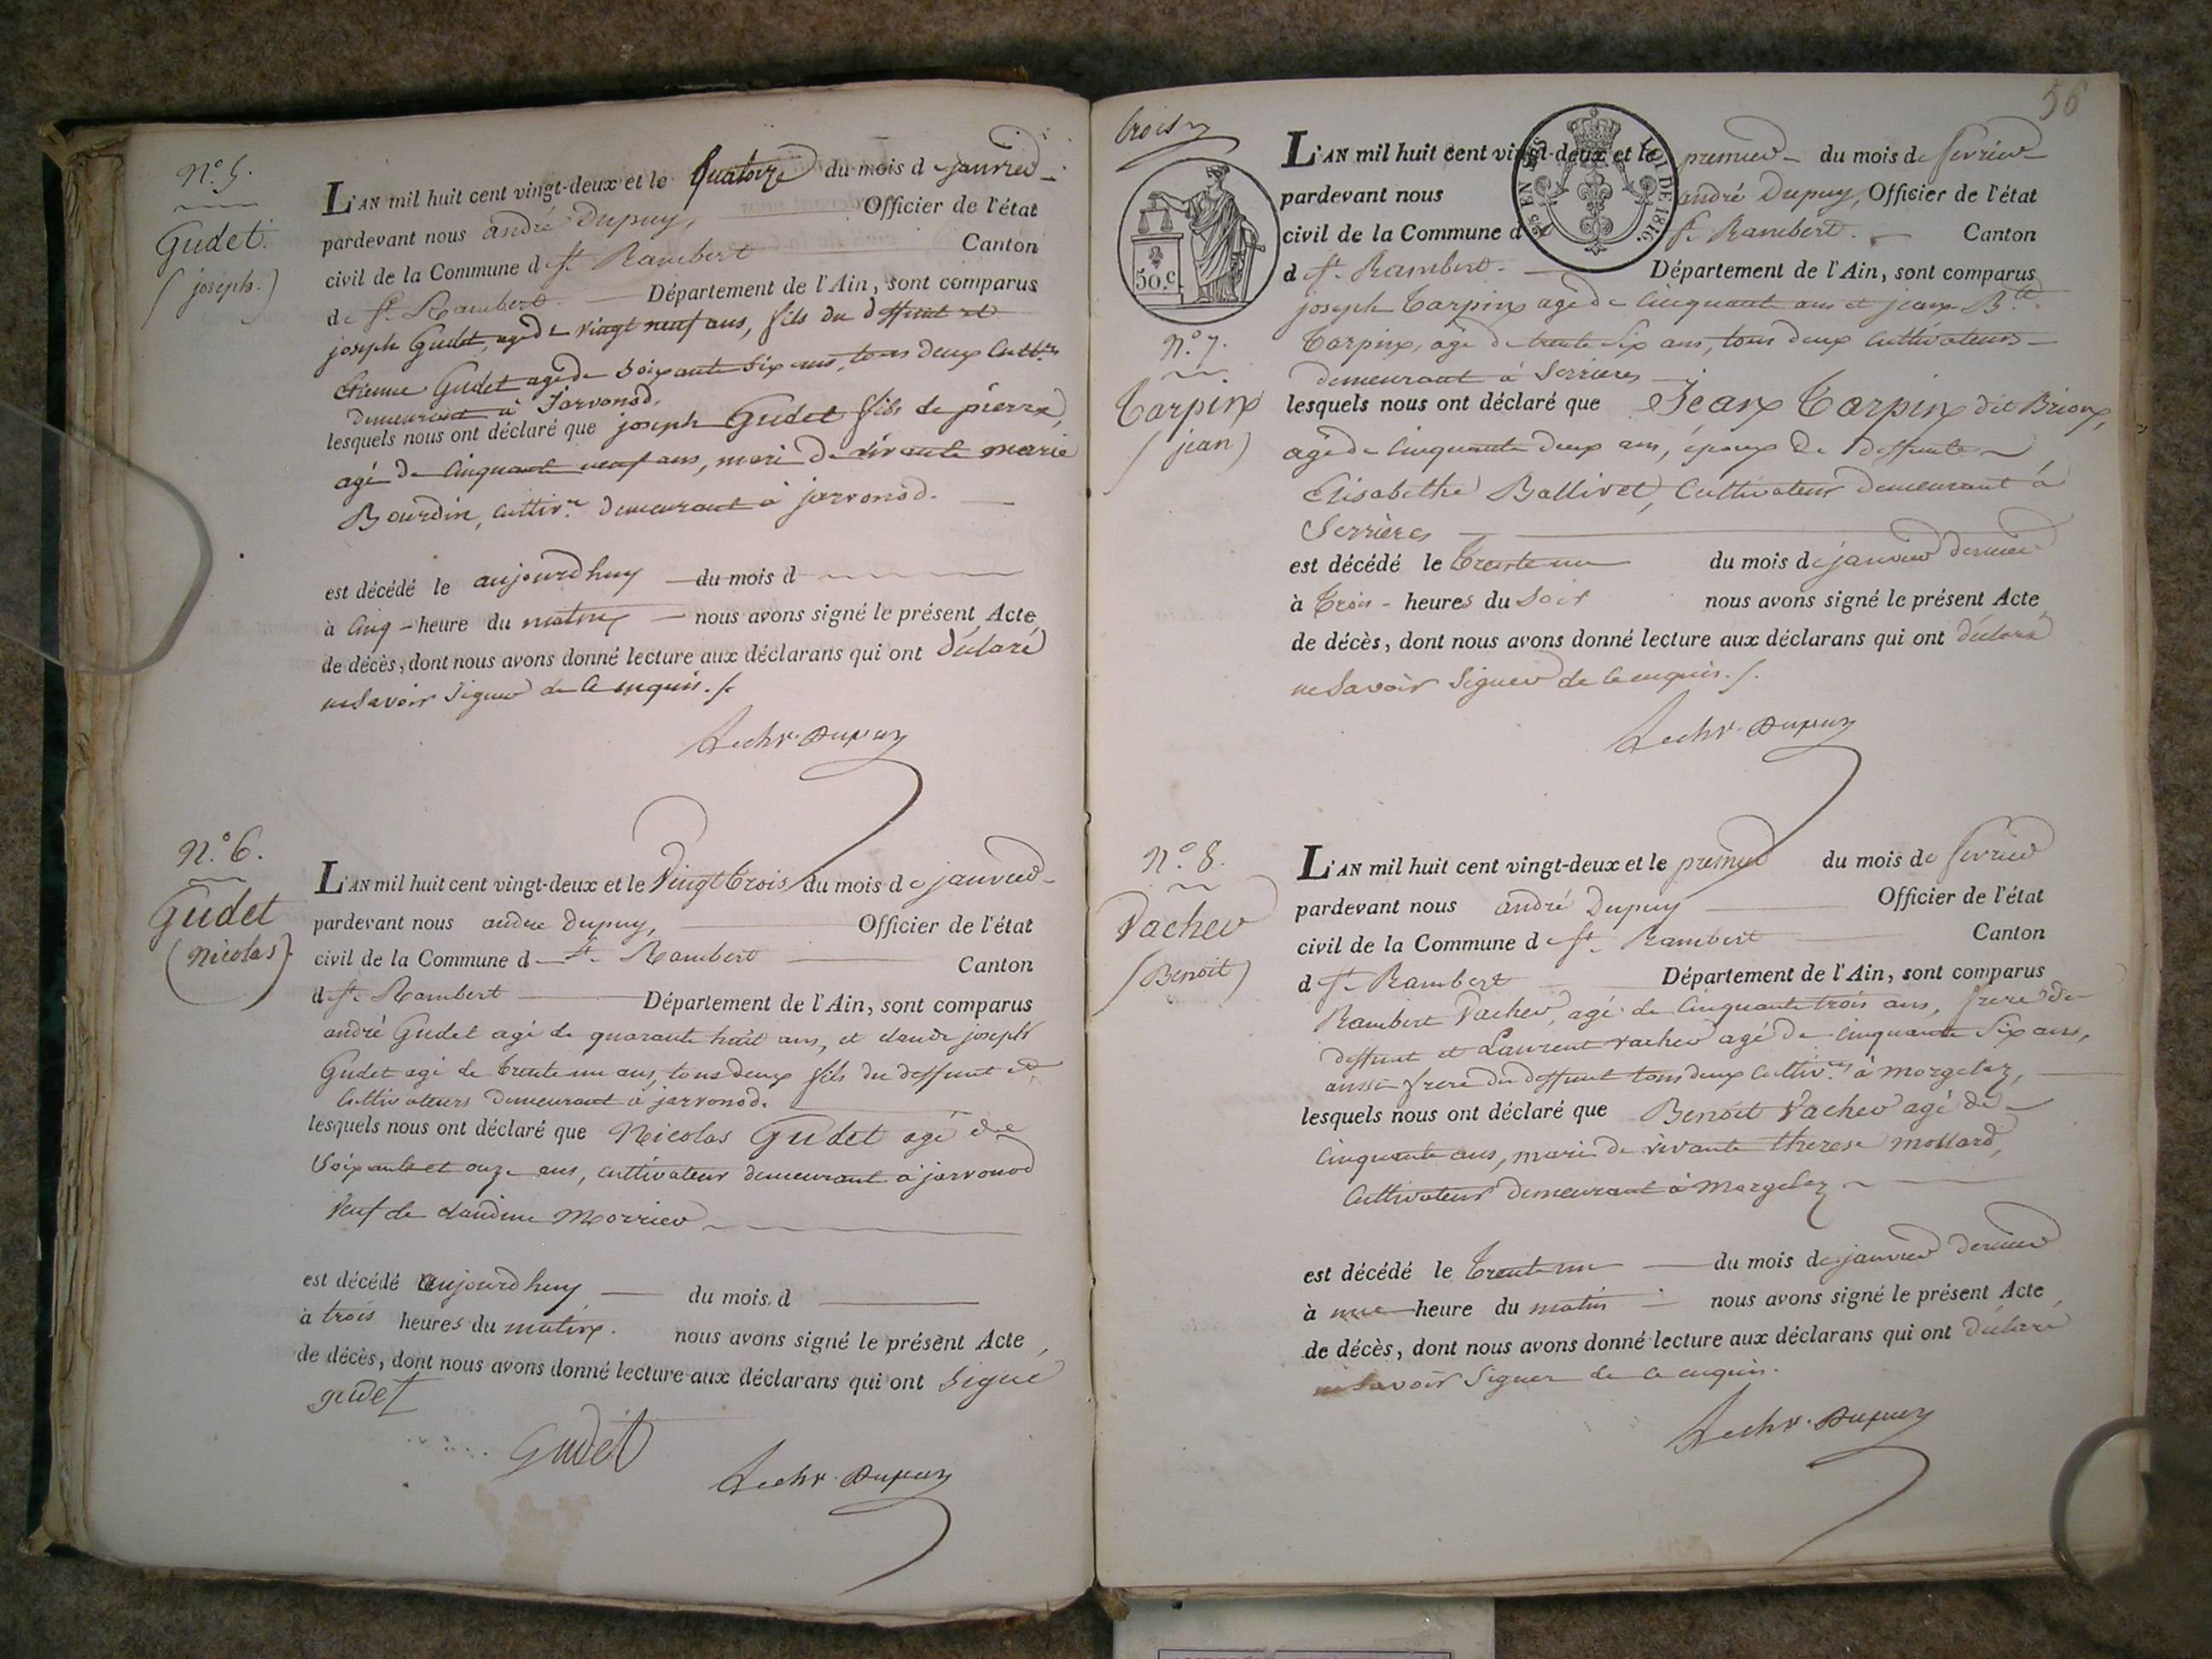 N.° 5.
Gudet.
(joseph.)
L'AN mil huit cent vingt-deux et le Quatorze du mois de janvier
pardevant nous andré Dupuy, Officier de l'état
civil de la Commune de St. Rambert Canton
de St. Rambert Département de l'Ain, sont comparus
joseph Gudet, agé de vingt neuf ans, fils du deffunt et
Etienne Gudet agé de soixante six ans, tous deux Cultrs
demeurant à Jarvonod.
lesquels nous ont déclaré que joseph Gudet fils de pierre,
agé de Cinquante neuf ans, mari de vivante marie
Bourdin, cultivr. demeurant à jarvonod.
est décédé le aujourdhuy du mois d
à Cinq heure du matin nous avons signé le présent Acte
de décès, dont nous avons donné lecture aux déclarans qui ont déclaré
ne Savoir Signer de ce enquis./.
Dupuy
N.° 6.
Gudet
(Nicolas).
L'AN mil huit cent vingt-deux et le Vingt trois du mois de janvier
pardevant nous andre Dupuy, Officier de l'état
civil de la Commune d St. Rambert Canton
de St. Rambert Département de l'Ain, sont comparus
andré Gudet agé de quarante huit ans, et claude joseph
Gudet agé de trente un ans, tous deux fils du deffunt et
Cultivateurs demeurant à jarvonod.
lesquels nous ont déclaré que Nicolas Gudet agé de
Soixante et onze ans, cultivateur demeurant à jarvonod
Veuf de claudine Morrier
est décédé aujourdhuy du mois d
à trois heures du matin. nous avons signé le présent Acte
de décès, dont nous avons donné lecture aux déclarans qui ont Signé
gudet
Gudet
Dupuy
56
trois
25 EN SUS LOI DE 1816.
50.c
N.° 7.
Tarpin
(jean)
L'AN mil huit cent vingt-deux et le premier du mois de fevrier
pardevant nous andré Dupuy, Officier de l'état
civil de la Commune de St. Rambert. Canton
d St. Rambert. Département de l'Ain, sont comparus
joseph Tarpin agé de Cinquante ans et jean Bte.
Tarpin, agé de trente Six ans, tous deux cultivateurs
demeurant à Serrieres
lesquels nous ont déclaré que Jean Tarpin dit Brion,
agé de Cinquante deux ans, époux de deffunte
Elisabethe Ballivet, Cultivateur demeurant à
Serrières
est décédé le Trente un du mois de janvier dernier
à Trois heures du Soir nous avons signé le présent Acte
de décès, dont nous avons donné lecture aux déclarans qui ont déclaré
ne Savoir Signer de ce enquis./.
Dupuy
N.° 8.
Vacher
(Benoit)
L'AN mil huit cent vingt-deux et le premier du mois de fevrier
pardevant nous andré Dupuy Officier de l'état
civil de la Commune de St. Rambert Canton
d St. Rambert Département de l'Ain, sont comparus
Rambert Vacher, agé de Cinquante trois ans, frere du
deffunt et Laurent vacher agé de cinquante Six ans,
aussi frere du deffunt tous deux cultivrs. à Morgelaz,
lesquels nous ont déclaré que Benoit Vacher agé de
Cinquante ans, mari de vivante therese mollard,
Cultivateur demeurant à Morgelaz
est décédé le Trente un du mois de janvier dernier
à une heure du matin nous avons signé le présent Acte
de décès, dont nous avons donné lecture aux déclarans qui ont déclaré
ne Savoir Signer de ce enquis.
Dupuy